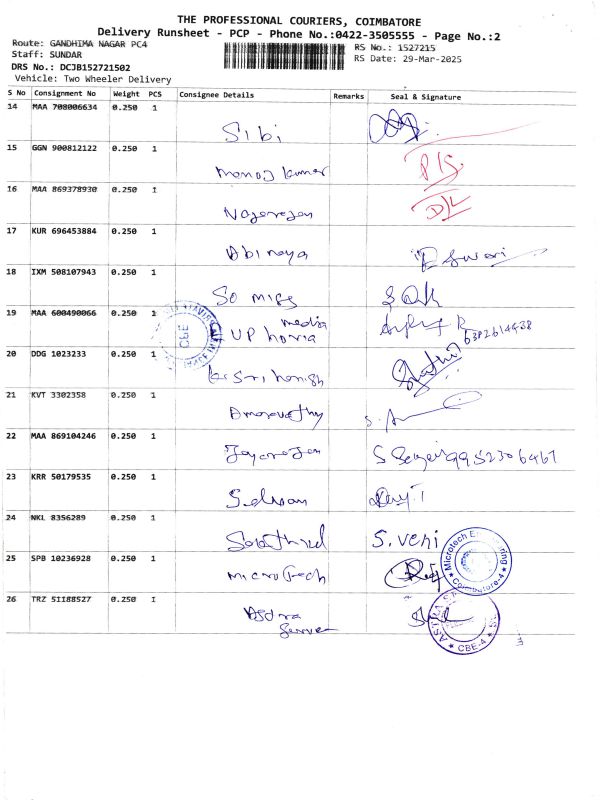 THE PROFESSIONAL COURIERS, COIMBATORE
Delivery Runsheet - PCP - Phone No.:0422-3505555 - Page No.:2
Route: GANDHIMA NAGAR PC4
RS No.: 1527215
Staff: SUNDAR
RS Date: 29-Mar-2025
DRS No.: DCJB152721502
Vehicle: Two Wheeler Delivery
S No Consignment No Weight PCS Consignee Details Remarks Seal & Signature
14 MAA 708006634 0.250 1
Sibi
15 GGN 900812122 0.250 1
manoj kumar
16 MAA 869378930 0.250 1
Nagarajan
17 KUR 696453884 0.250 1
Abinaya
18 IXM 508107943 0.250 1
19 MAA 600490066 0.250 1
media
UP horia
6382614438
20 DDG 1023233 0.250 1
Sri harish
21 KVT 3302358 0.250 1
22 MAA 869104246 0.250 1
Jayarajan 9952306467
23 KRR 50179535 0.250 1
Selvam
24 NKL 8356289 0.250 1
S. veni
25 SPB 10236928 0.250 1
microtech
Microtech Engineering
Coimbatore-4
26 TRZ 51188527 0.250 1
Astra
CBE-4
CBE